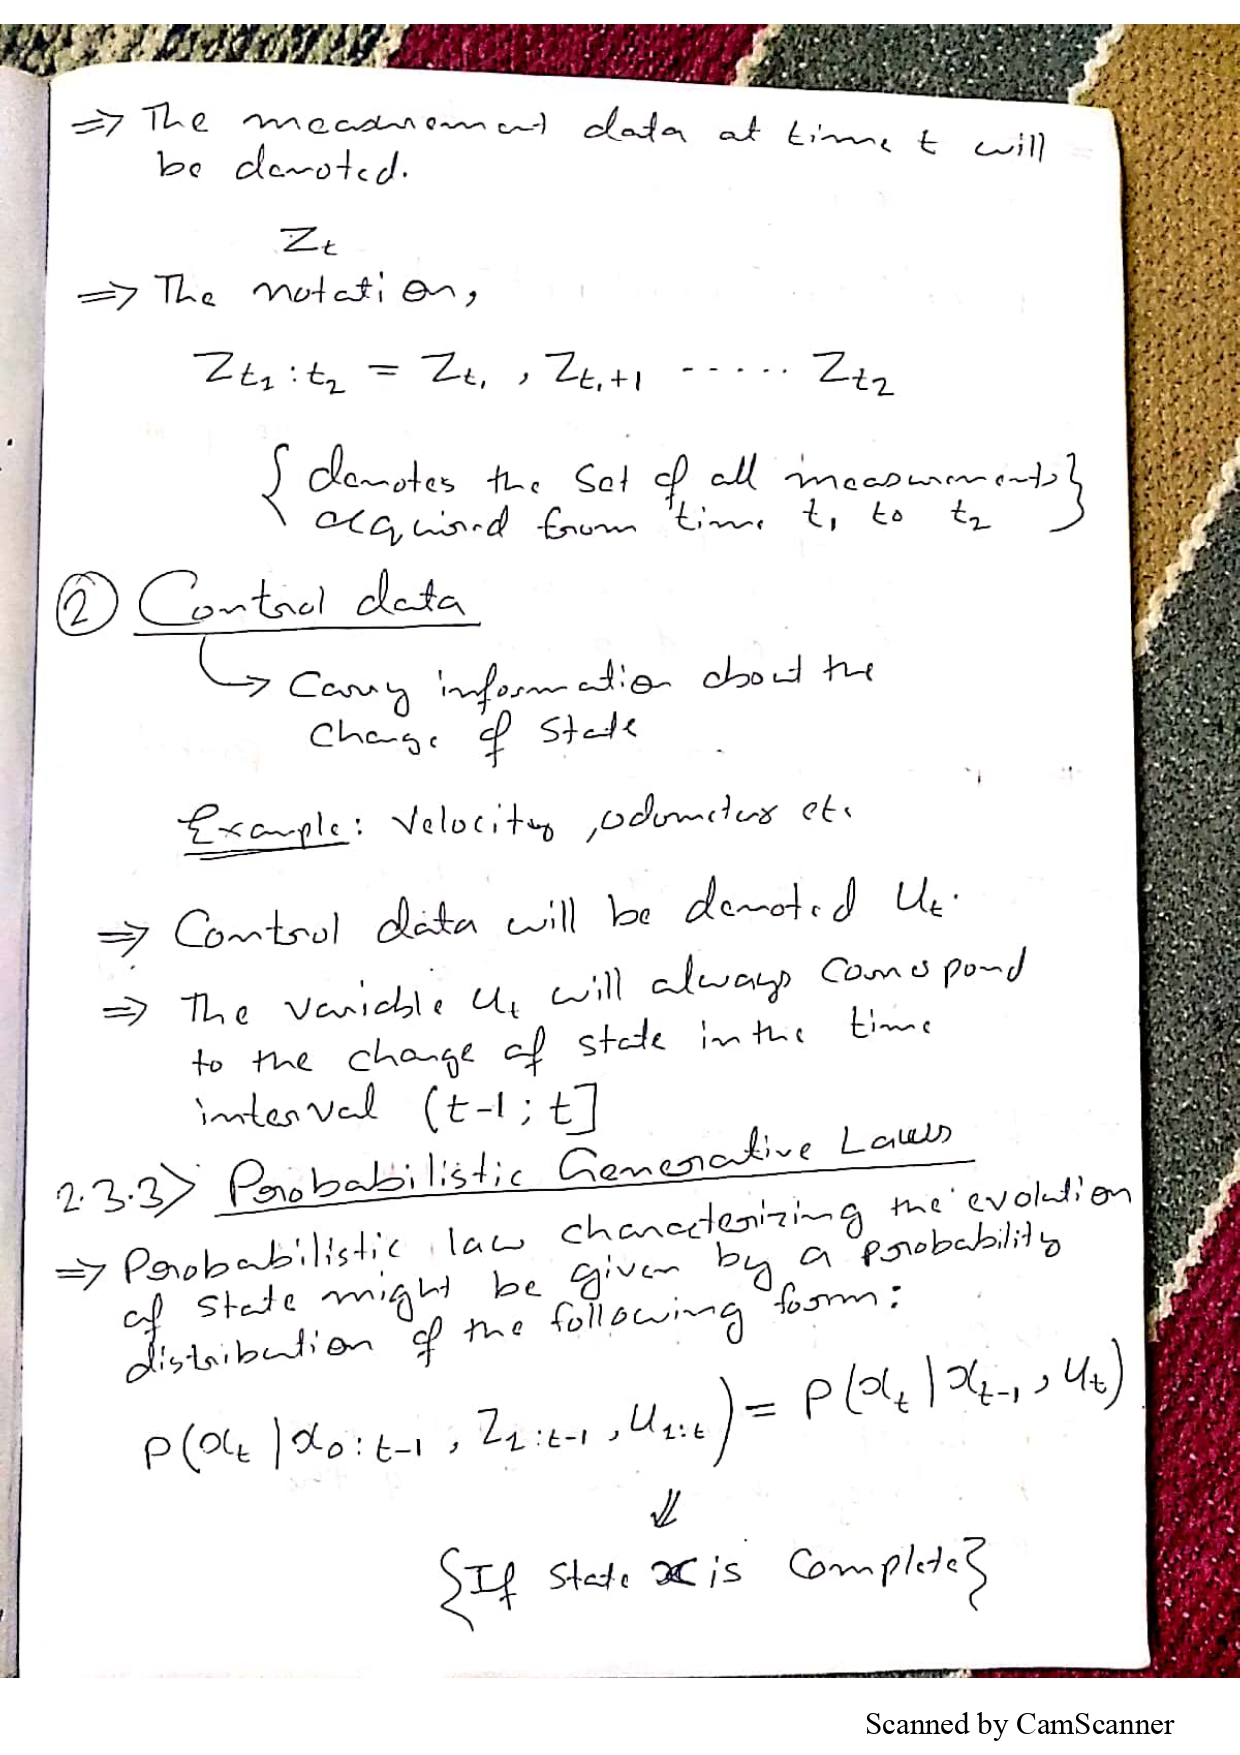 ⇒ The measurement data at time t will
be denoted.
Zt
⇒ The notation,
Zt1:t2 = Zt1 , Zt1+1 ----- Zt2
{ denotes the set of all measurements
acquired from time t1 to t2 }
② Control data
↳ Carry information about the
change of state
Example: Velocity, odometers etc
⇒ Control data will be denoted Ut.
⇒ The variable Ut will always correspond
to the change of state in the time
interval (t-1; t]
2.3.3> Probabilistic Generative Laws
⇒ Probabilistic law characterizing the evolution
of state might be given by a probability
distribution of the following form:
P(xt | x0:t-1 , Z1:t-1 , U1:t) = P(xt | xt-1 , Ut)
⇓
{If state x is Complete}
Scanned by CamScanner